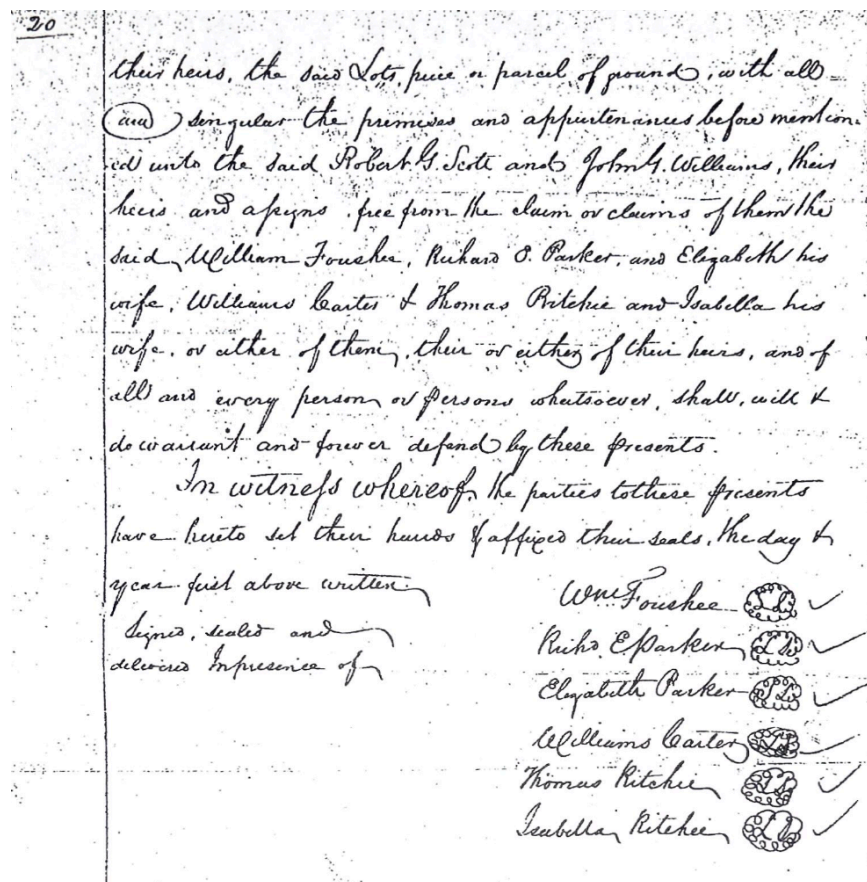 20
their heirs, the said Lots, piece or parcel of ground, with all
and singular the premises and appurtenances before mention-
ed unto the said Robert G. Scott and John G. Williams, their
heirs and assigns, free from the claim or claims of them the
said, William Foushee, Richard E. Parker, and Elizabeth his
wife, Williams Carter & Thomas Ritchie and Isabella his
wife, or either of them, their or either of their heirs, and of
all and every person or persons whatsoever, shall, will &
do warrant and forever defend by these presents.
In witness whereof, the parties to these presents
have hereto set their hands & affixed their seals, the day &
year first above written
Signed, sealed and
delivered In presence of
Wm Foushee L.S.
Richd. E Parker L.S.
Elizabeth Parker L.S.
Williams Carter L.S.
Thomas Ritchie L.S.
Isabella Ritchie L.S.